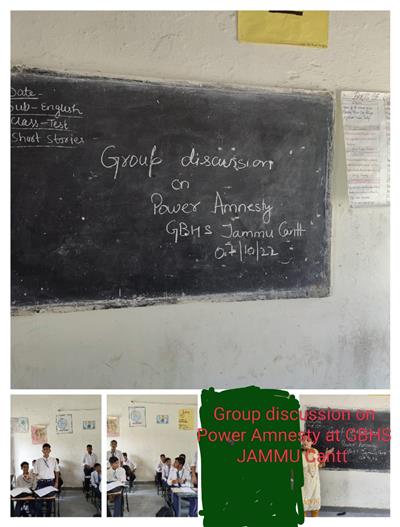 Date-
Sub-English
Class-Test
Short Stories
Group discussion
on
Power Amnesty
GBHS Jammu Cantt
07/10/22
Group discussion on
Power Amnesty at GBHS
JAMMU Cantt